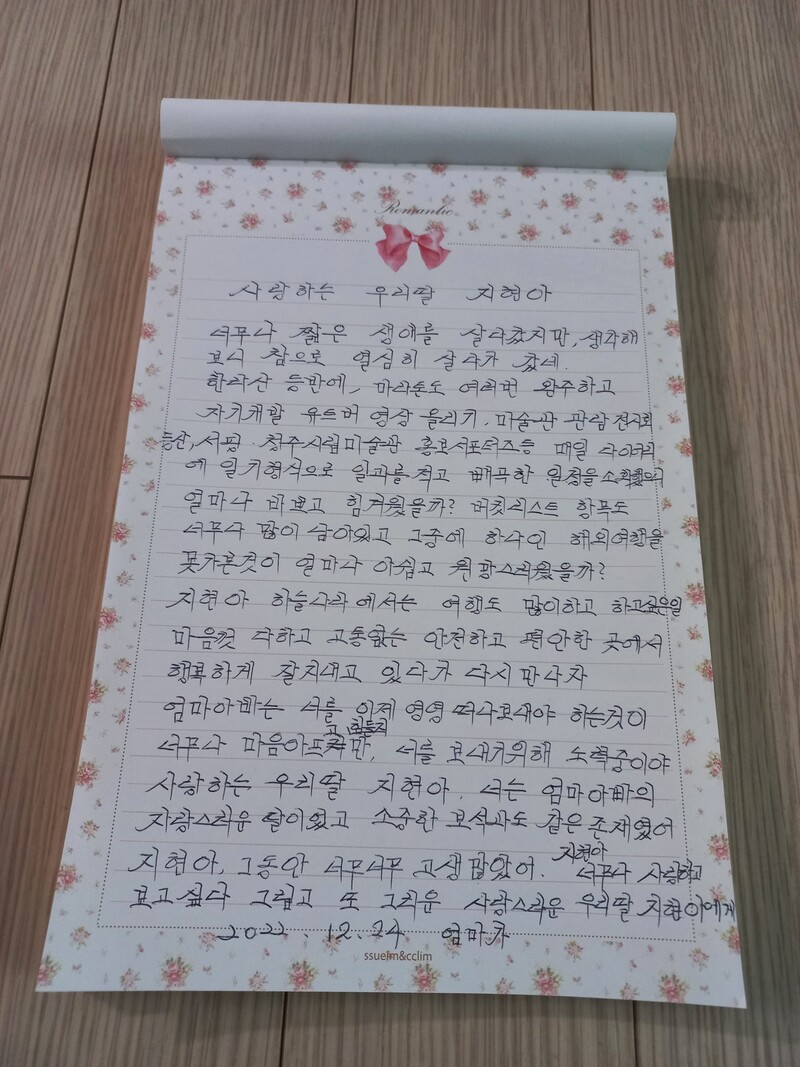 Romantic
사랑하는 우리딸 지현아
너무나 짧은 생애를 살다갔지만, 생각해
보니 참으로 열심히 살다가 갔네.
한라산 등반에, 마라톤도 여러번 완주하고
자기개발 유트버 영상 올리기. 미술관 관람 전시회
등산, 서평. 청주시립미술관 홍보서포터즈등 매일 다이어리
에 일기형식으로 일과를 적고 빼곡한 일정을 소화했으니
얼마나 바쁘고 힘겨웠을까? 버킷리스트 항목도
너무나 많이 남아있고 그중에 하나인 해외여행을
못가본것이 얼마나 아쉽고 원망스러웠을까?
지현아 하늘나라에서는 여행도 많이하고 하고싶은일
마음껏 다하고 고통없는 안전하고 편안한 곳에서
행복하게 잘지내고 있다가 다시 만나자
엄마아빠는 너를 이제 영영 떠나보내야 하는것이
너무나 마음아프고 힘들지만, 너를 보내기위해 노력중이야
사랑하는 우리딸 지현아. 너는 엄마아빠의
자랑스러운 딸이었고 소중한 보석과도 같은 존재였어
지현아, 그동안 너무너무 고생많았어. 지현아 너무나 사랑하고
보고싶다 그립고 또 그리운 사랑스러운 우리딸 지현이에게
2022. 12. 24 엄마가
ssueim&cclim